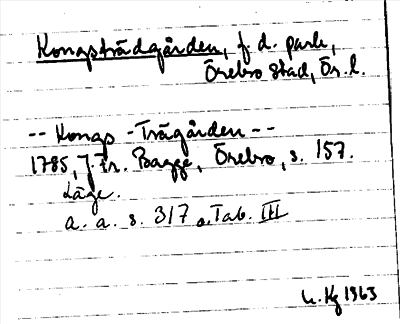 Kongsträdgården, f.d. park,
Örebro stad, Ör. l.
-- Kongs - Trägården --
1785, J. Fr. Bagge, Örebro, s. 157.
Läge.
a. a. s. 317 o. Tab. III
1963